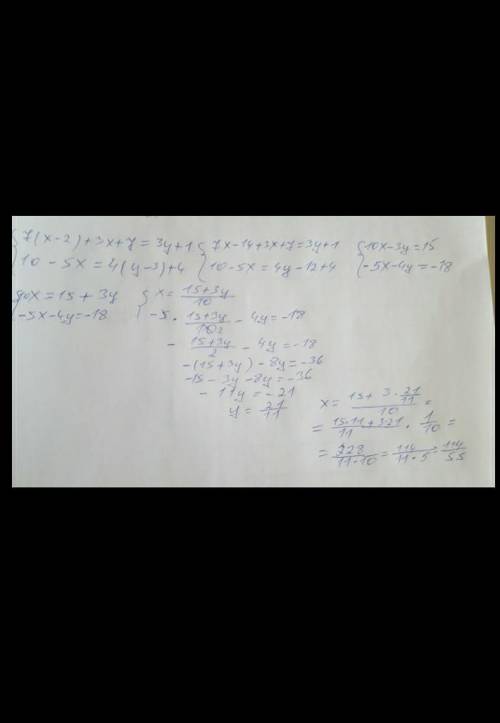 { 7(x-2)+3x+7=3y+1 { 7x-14+3x+7=3y+1 { 10x-3y=15
10-5x=4(y-3)+4 10-5x=4y-12+4 -5x-4y=-18
10x=15+3y { x= (15+3y)/10
-5x-4y=-18 -5 · (15+3y)/10 2 - 4y=-18
- (15+3y)/2 - 4y=-18
-(15+3y)-8y=-36
-15-3y-8y=-36
-11y=-21
y= 21/11
x= (15+3·21/11)/10 =
= (15·11+3·21)/11 · 1/10 =
= 228/(11·10) = 114/(11·5) = 114/55